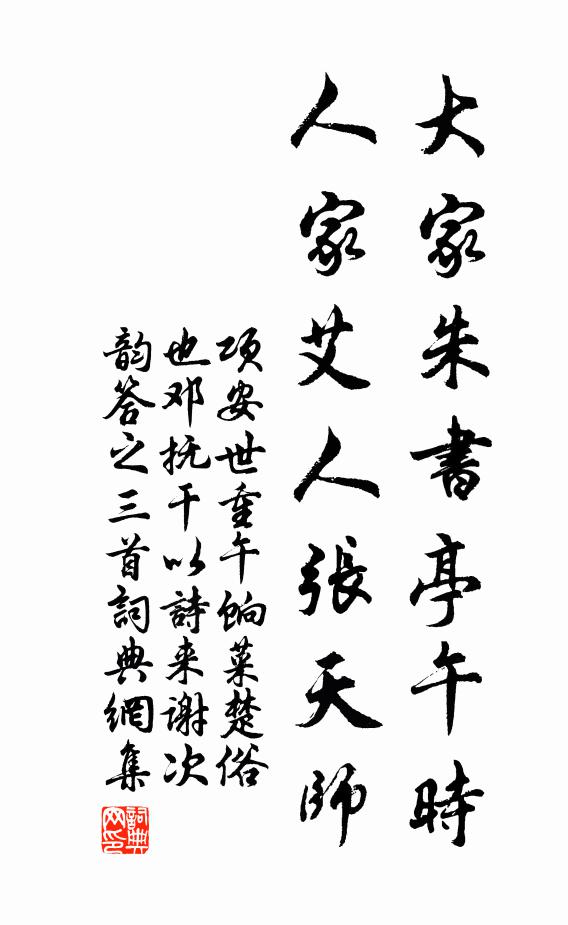 大家朱書亭午時
人家艾人張天師
项安世重午饷菜楚俗
也邓抚干以詩来谢次
韵答之三首詞典網集
詞典
网印